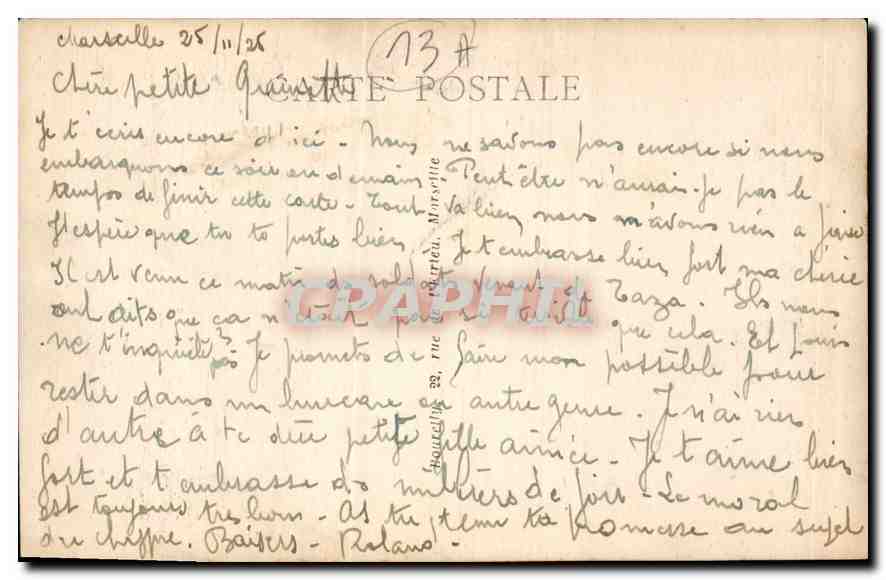 Marseille 25/11/25
13 A
Chère petite
CARTE POSTALE
Je t'écris encore d'ici - Nous ne savons pas encore si nous
embarquons ce soir ou demain Peut être n'aurai-je pas le
temps de finir cette carte - Tout va bien, nous n'avons rien a faire
J'espère que tu te portes bien. Je t'embrasse bien fort ma chérie
Il est venu ce matin des soldats venant de Taza. Ils nous
ont dits que ça n'était pas si que cela. Et puis
ne t'inquiète pas Je promets de faire mon possible pour
rester dans un bureau ou autre genre. Je n'ai rien
d'autre à te dire petite fille aimée. Je t'aime bien
fort et t'embrasse des milliers de fois - Le moral
est toujours très bon - As tu tenu ta promesse au sujet
du chiffre. Baisers - Roland -
22, rue Marseille
CPAPHIL